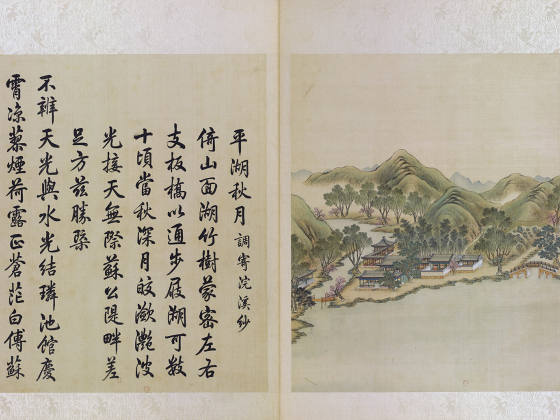 平湖秋月 調寄浣溪紗
倚山面湖竹樹蒙密左右
支板橋以通步屧湖可數
十頃當秋深月皎瀲灧波
光接天無際蘇公隄畔差
足方茲勝槩
不辨天光與水光結璘池館慶
霄涼蓼煙荷露正蒼茫白傅蘇